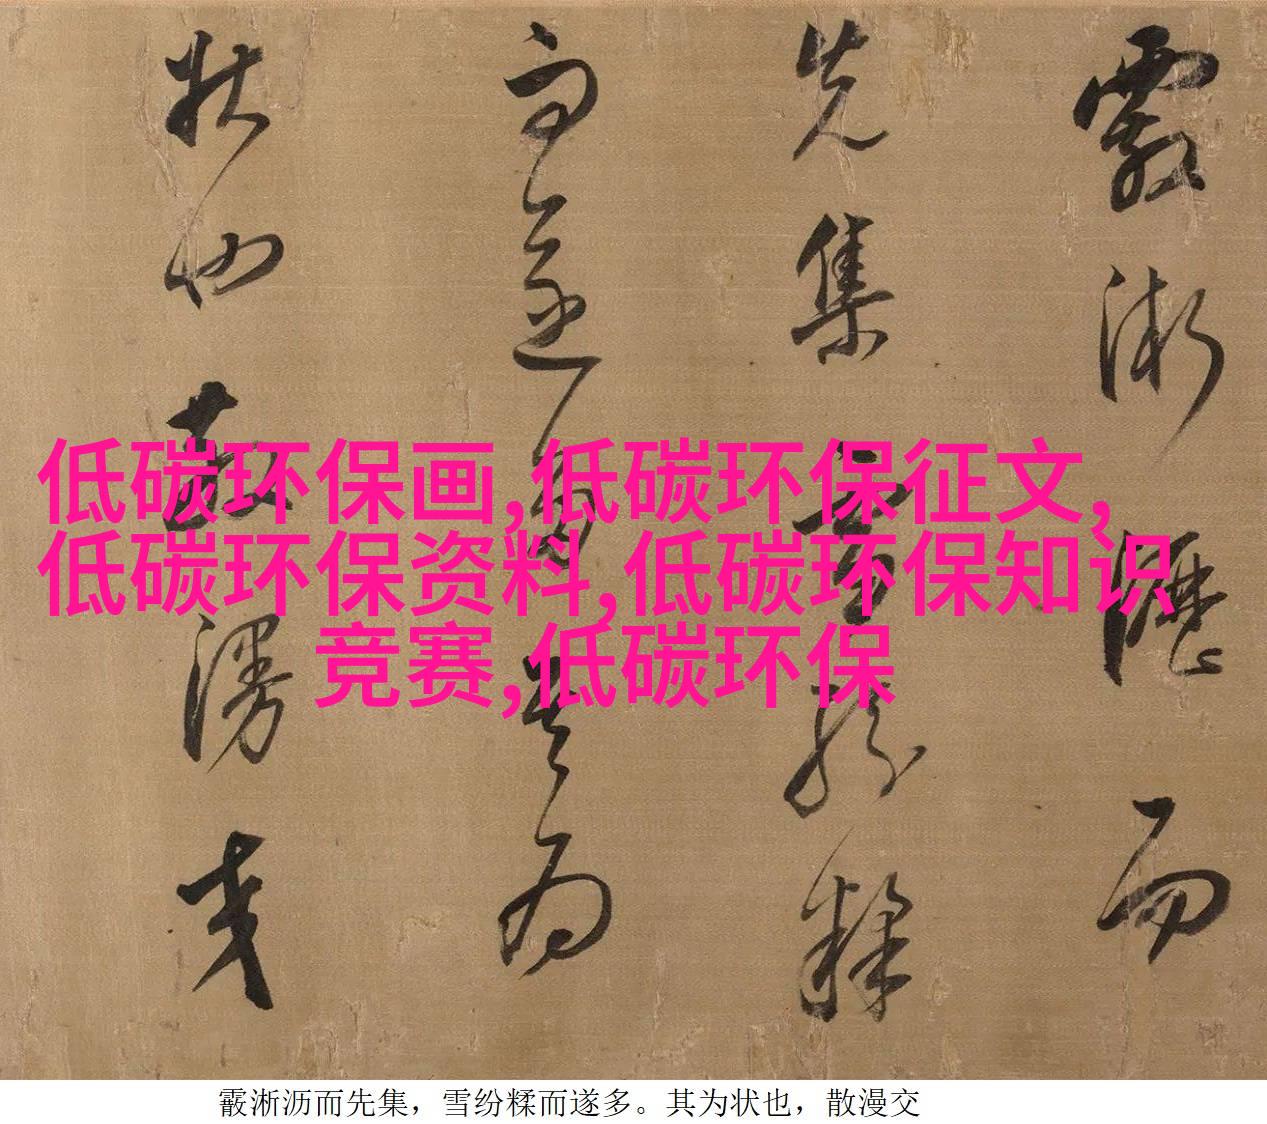 霰淅沥而
先集雪纷糅
而遂多其为
状也散漫交
低碳环保画,低碳环保征文,
低碳环保资料,低碳环保知识
竞赛,低碳环保
霰淅沥而先集，雪纷糅而遂多。其为状也，散漫交